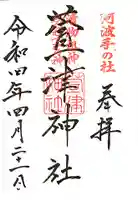 阿波手の杜
奉拝
萱津神社
令和四年四月二十一日